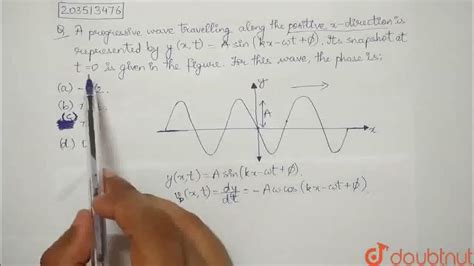 203513476
Q. A progressive wave travelling along the positive x-direction is
represented by y(x,t) = A sin (kx-ωt+Ø). Its snapshot at
t=0 is given in the figure. For this wave, the phase is:
(a) -
(b)
(c)
(d)
y
A
x
y(x,t) = A sin(kx-ωt+Ø)
(x,t) = dy/dt = -Aω cos(kx-ωt+Ø)
doubtnut